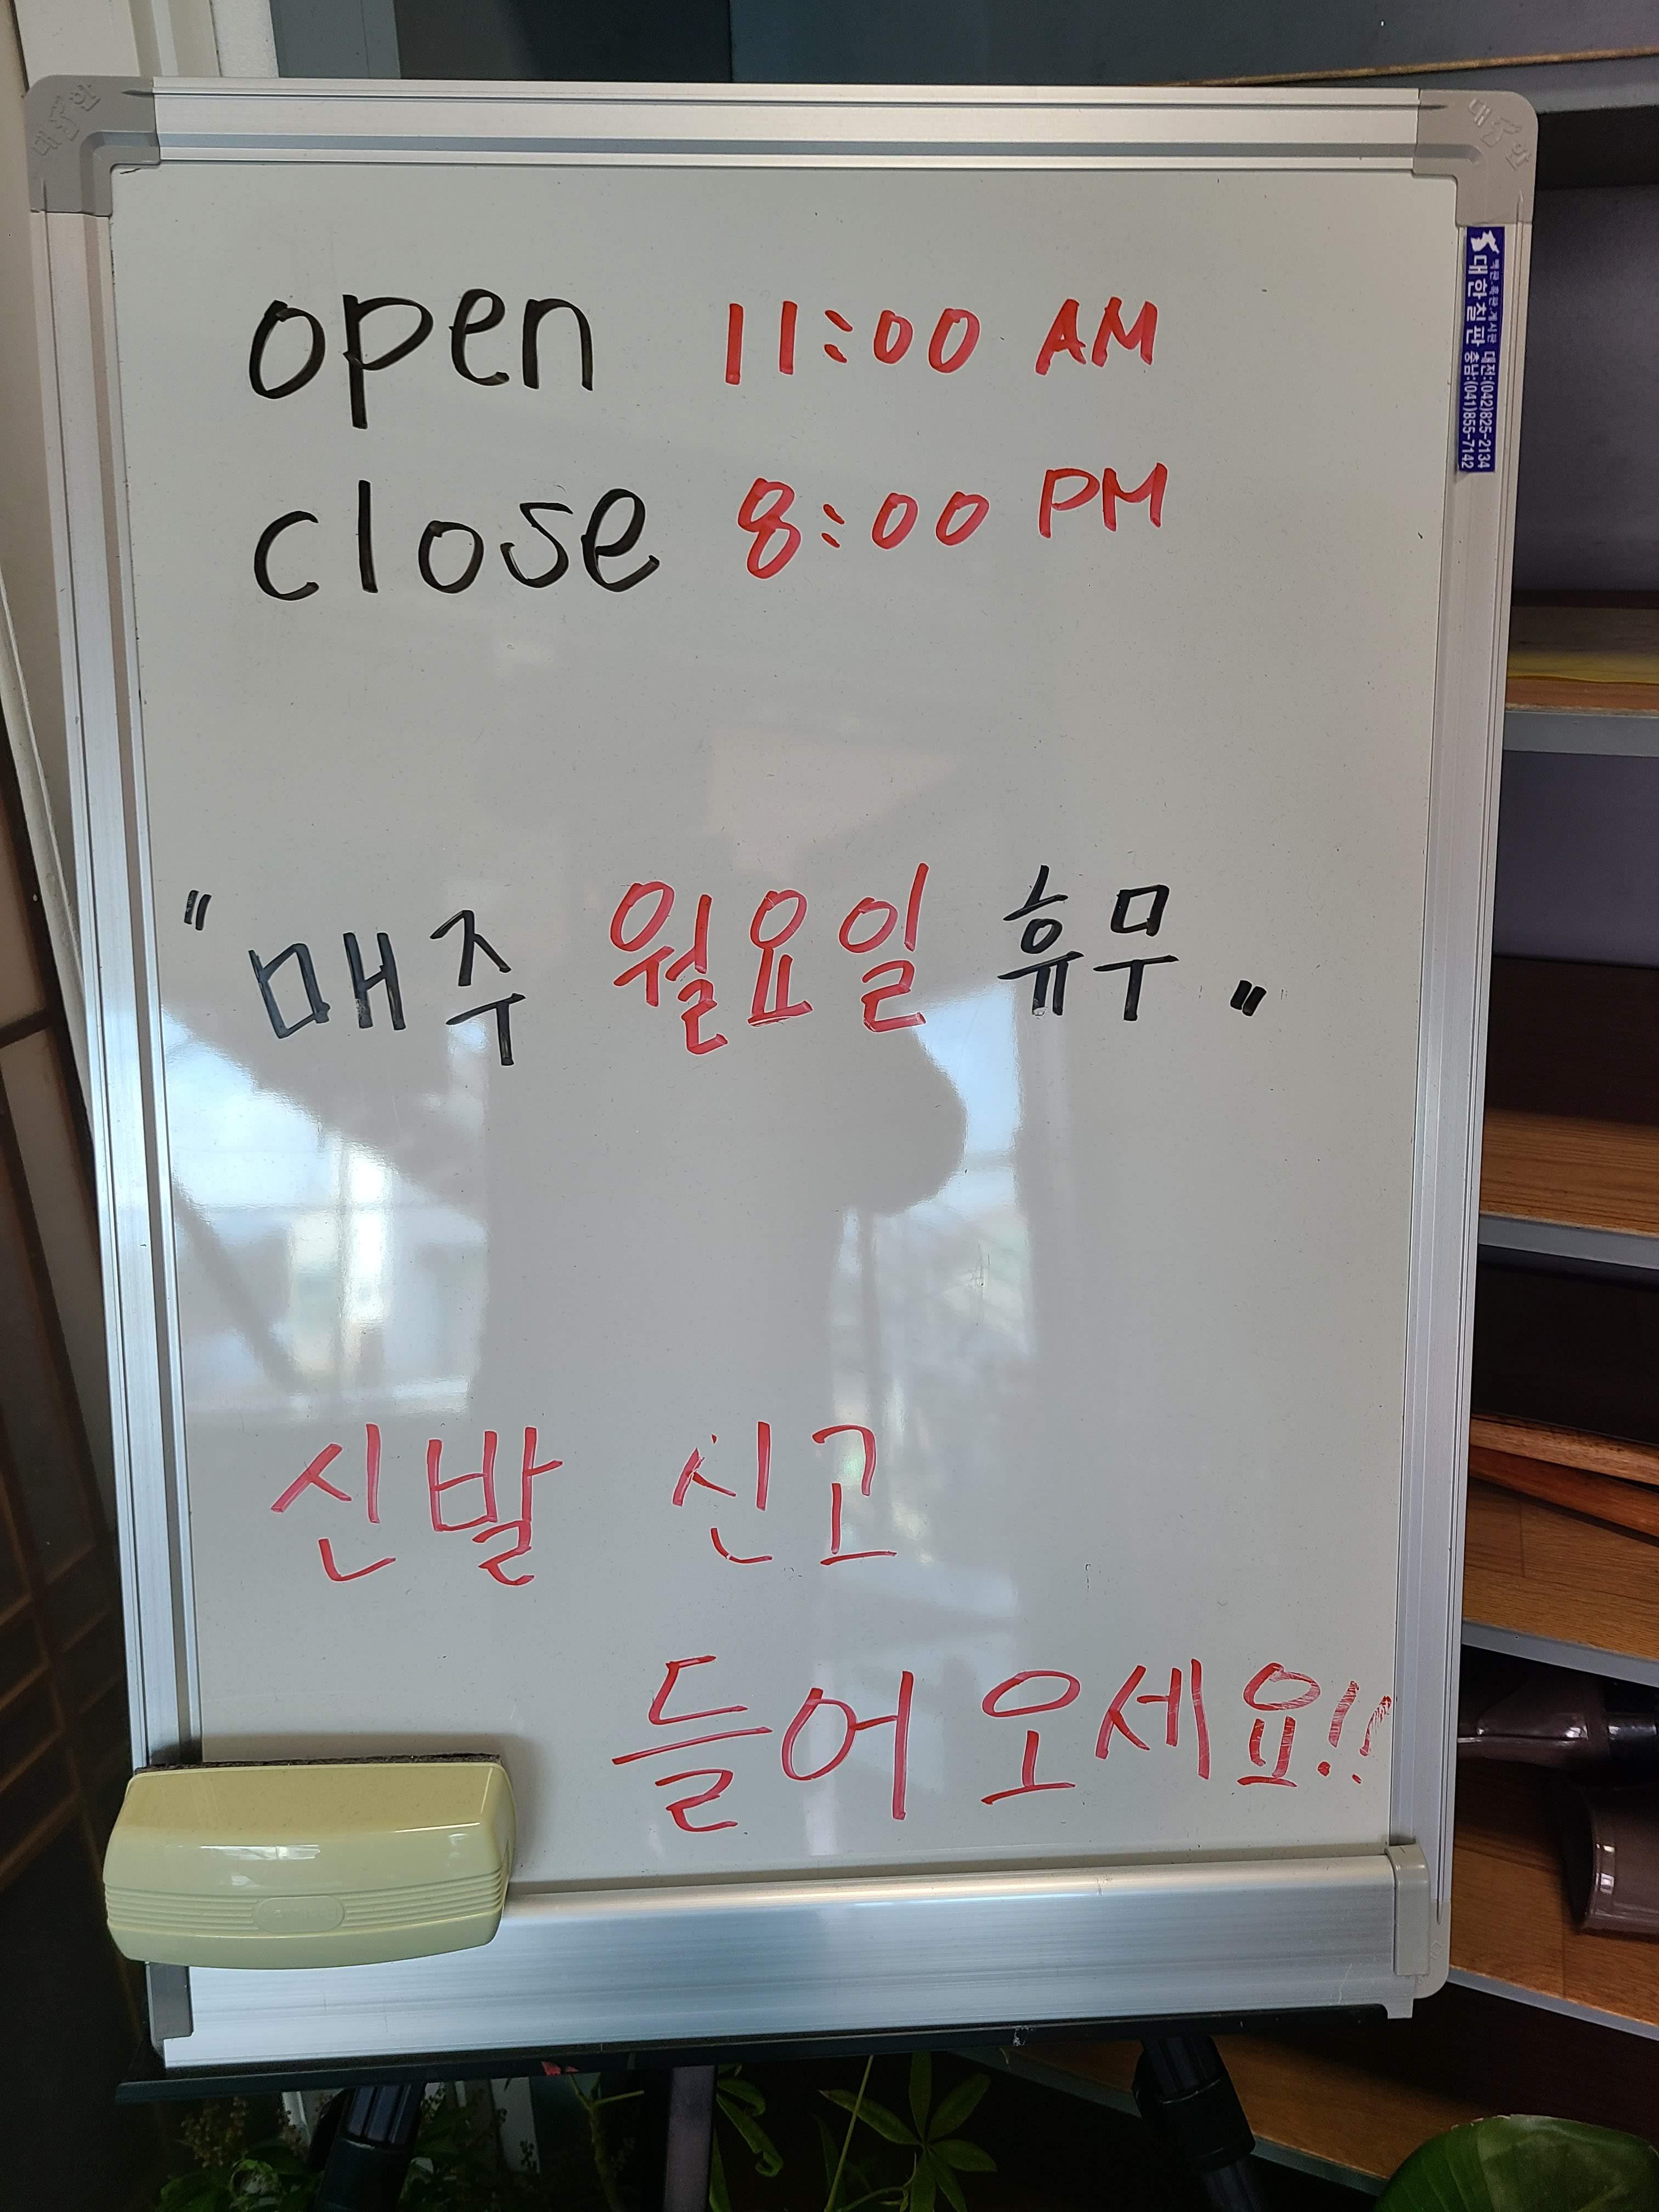 open 11:00 AM
close 8:00 PM
" 매주 월요일 휴무 "
신발 신고
들어 오세요!!
백판.흑판.게시판
대한칠판
대전:(042)825-2134
충남:(041)855-7142